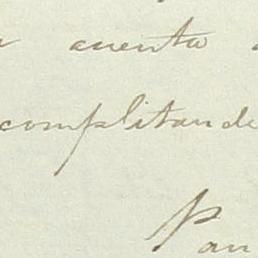 cuenta
complitande
Pan